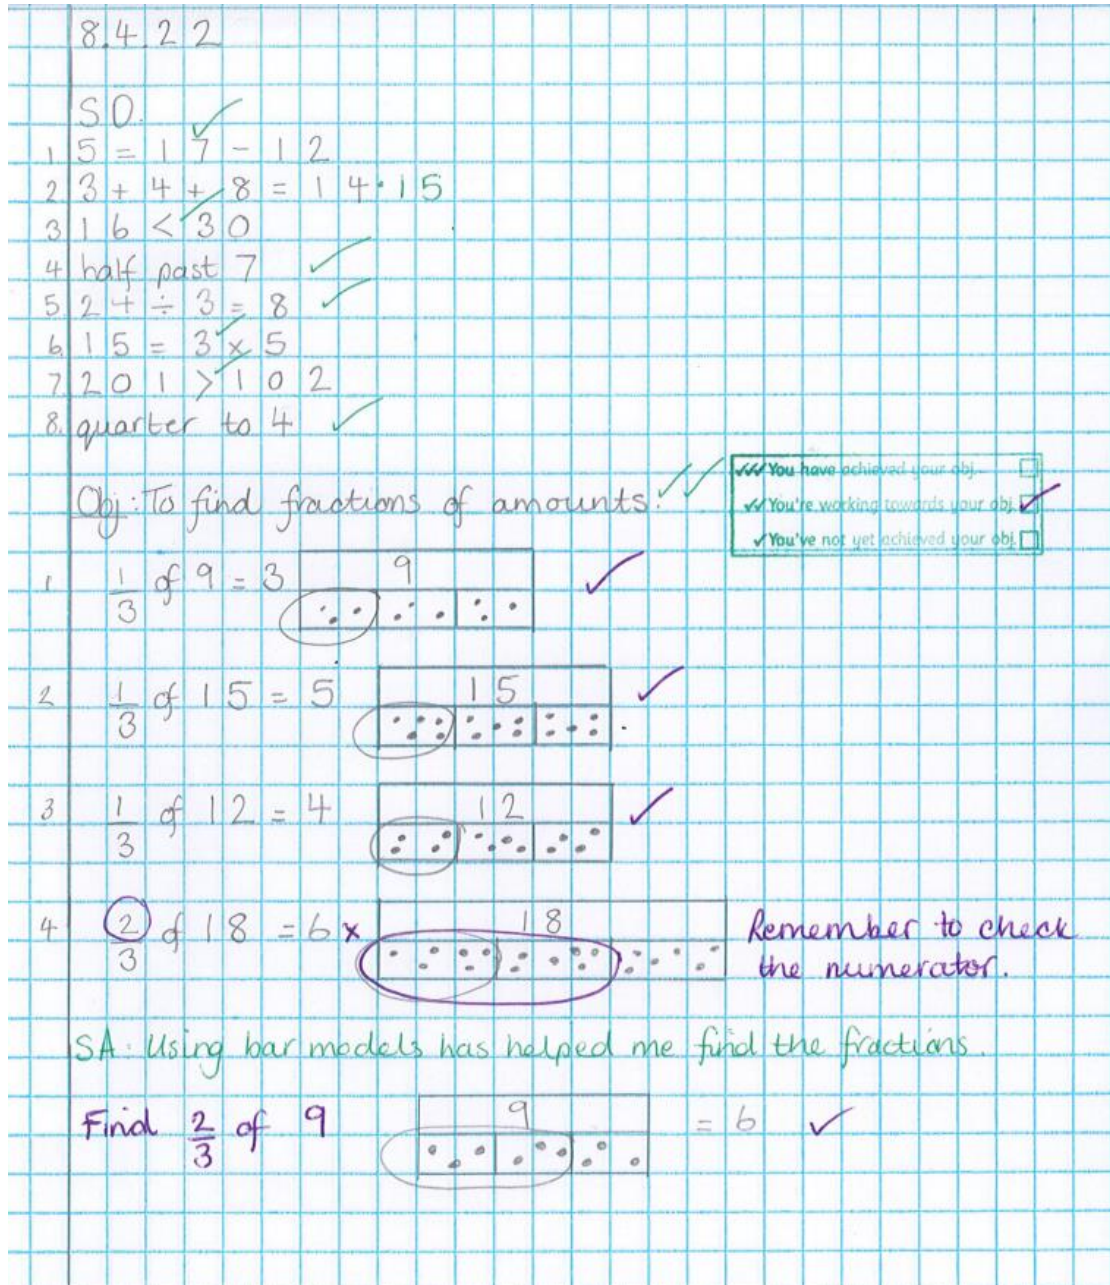 8.4.22
S O.
1 5 = 17 - 12
2 3 + 4 + 8 = 14·15
3 16 < 30
4 half past 7
5 24 ÷ 3 = 8
6. 15 = 3 x 5
7. 201 > 102
8. quarter to 4
✓✓✓ You have achieved your obj.
Obj: To find fractions of amounts. ✓✓
✓✓ You're working towards your obj.
✓ You've not yet achieved your obj.
1 1/3 of 9 = 3 9
2 1/3 of 15 = 5 15
3 1/3 of 12 = 4 12
4 2/3 of 18 = 6 x 18 Remember to check
the numerator.
SA: Using bar models has helped me find the fractions.
Find 2/3 of 9 9 = 6